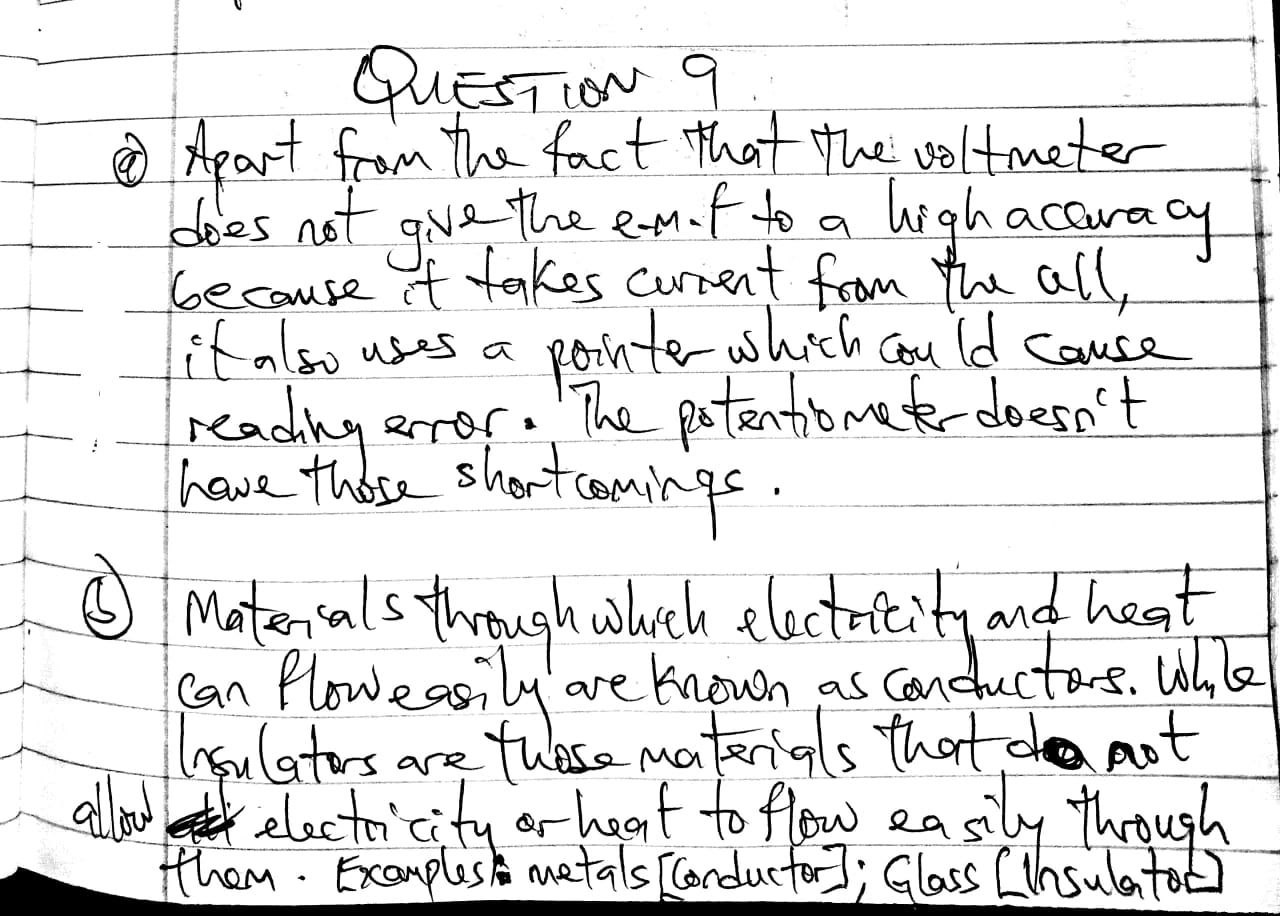 QUESTION 9
(a) Apart from the fact that the voltmeter
does not give the e.m.f to a high accuracy
because it takes current from the cell,
it also uses a pointer which could cause
reading error. The potentiometer doesn't
have those shortcomings.
(b) Materials through which electricity and heat
can flow easily are known as conductors. While
Insulators are those materials that do not
allow electricity or heat to flow easily through
them. Examples: metals [Conductor]; Glass [Insulator]